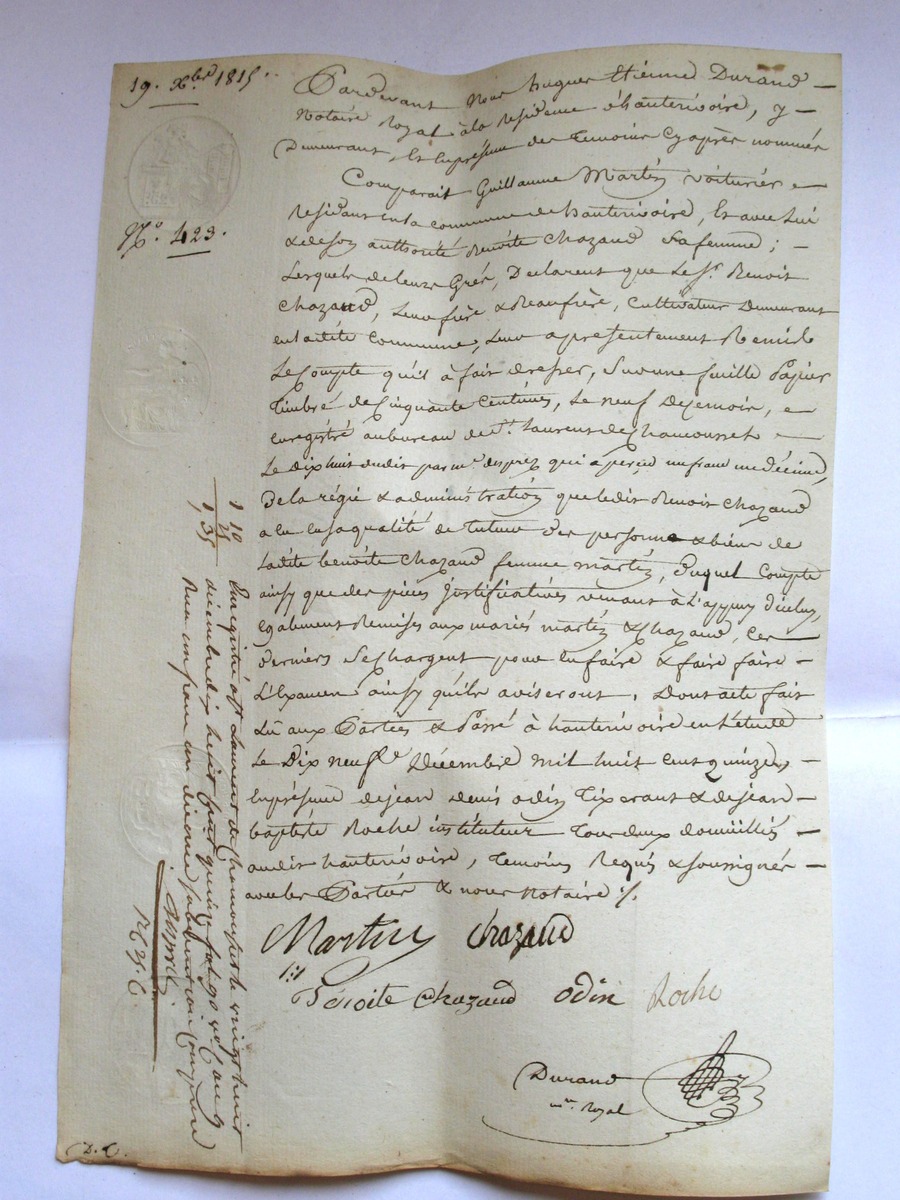 19. Xbre 1815.
N° 423.
Pardevant Nous hugues Etienne Durand
Notaire Royal à la Residence d'hauterivoire, y
Demeurant, Et En présence des Temoins Cy après nommés
Comparait Guillaume Martin voiturier
Residant en la commune de hauterivoire, Et avec lui
& de son authorité Benoite Chazaud sa femme;
Lesquels de leurs Grés, Déclarent que Le Sr. Benoit
Chazaud, Leur frère & Beaufrère, Cultivateur Demeurant
en ladite Commune, Leur a présentement Remis
Le Compte qu'il à fait dresser, Sur une feuille Papier
Timbré de Cinquante Centimes, Le neuf De ce mois,
enregistré au bureau de St. Laurent de Chamousset
Le dix huit dudit par mr. desprez qui a perçu un franc un décime,
De la régie & administration que ledit Benoit Chazaud
a eu en sa qualité de tuteur des personne & biens de
Ladite benoite Chazaud femme martin, Duquel Compte
ainsy que des pièces Justificatives venant à L'appuy d'icelui,
Egalement Remises aux mariés martin & Chazaud, Ces
derniers Se Chargent pour En faire & faire faire
L'Examen ainsy qu'ils aviseront. Dont acte fait
Lû aux Parties & Passé à hauterivoire en L'étude
Le Dix neuf Décembre mil huit cent quinze,
En présence de jean denis odin Tixerant & de jean
baptiste Roche instituteur Tous deux domicilliés
audit hauterivoire, Temoins Requis & soussignés
avec les Parties & nous Notaire ./.
Martin Chazaud
Benoite Chazaud odin Roche
Durand
nre. Royal
Enregistré à St Laurent de Chamousset le vingt huit
décembre dix huit cent quinze
Reçu un franc un décime subvention comprise
desprez
1 10
25
1,35
D. C.